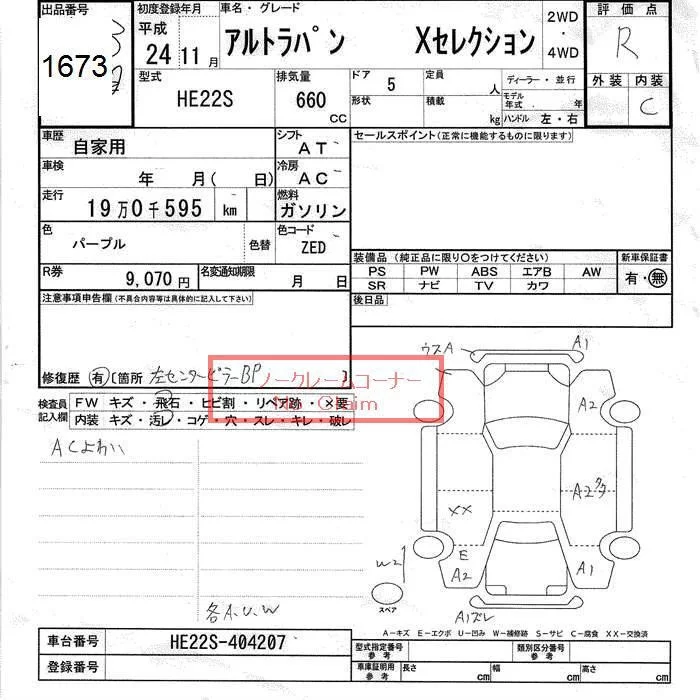 出品番号 初度登録年月 車名・グレード 評価点
1673 平成 24 年 11 月 アルトラパン Xセレクション 2WD・4WD R
型式 HE22S 排気量 660 CC ドア 5 形状 定員 人 積載 kg ディーラー・並行 モデル年式 年 ハンドル 左・右 外装 内装 C
車歴 自家用 シフト AT セールスポイント(正常に機能するものに限ります)
車検 年 月( 日) 冷房 AC
走行 19万0千595 km 燃料 ガソリン
色 パープル 色替 色コード ZED
装備品 (純正品に限り○をつけてください) 新車保証書
R券 9,070円 名変通知期限 月 日 PS PW ABS エアB AW 有・無
SR ナビ TV カワ
注意事項申告欄(不具合内容等は具体的に記入して下さい) 後日品
修復歴 有〔箇所 左センターピラーBP 〕
ノークレームコーナー
No Claim
検査員記入欄 FW キズ・飛石・ヒビ割・リペア跡・×要
内装 キズ・汚レ・コゲ・穴・スレ・キレ・破レ
ACよわい
ウスA A1
A2
A2
XX
E
A2 A1
W2
スペア
A1ズレ
各A.U.W
A−キズ E−エクボ U−凹み W−補修跡 S−サビ C−腐食 XX−交換済
車台番号 HE22S-404207 型式指定番号 参考 類別区分番号 参考
登録番号 車庫証明用 参考 長さ cm 幅 cm 高さ cm